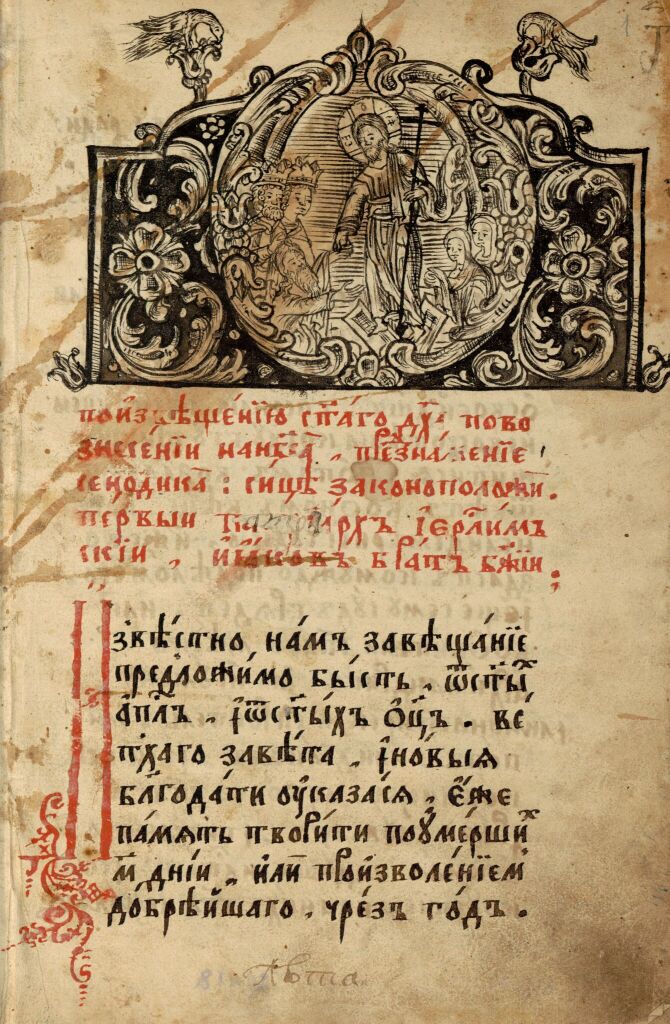 поизвѣщенїю ст҃аго дх҃а пово
знесенїи нанб҃са , презнаменїе
сенодика : сицѣ законоположи .
первыи патрїархъ їерⷭ҇лим
скїи , їꙗковъ братъ бж҃їи .
Извѣстно намъ завѣщанїе
предложимо бысть , ѿст҃ыⷯ
а҆пл҃ъ , и҆ѿст҃ыхъ ѻц҃ъ . ве
тхаго завѣта , и҆новыя
бл҃годати оуказася , е҆же
память творити поумершиⷯ
м҃ днїи , или произволенїем
добрѣйшаго , чрезъ годъ .